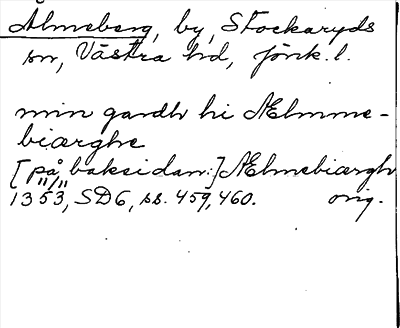 Almeberg, by, Stockaryds
sn, Västra hd, Jönk. l.
min gardh hi Ælmme-
biærghe
[på baksidan:] Ælmebiærgh
11/11
1353, SD6, ss. 459, 460. orig.